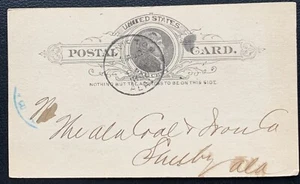 UNITED STATES
POSTAL CARD.
NOTHING BUT THE ADDRESS TO BE ON THIS SIDE.
The Ala Coal & Iron Co
Ala